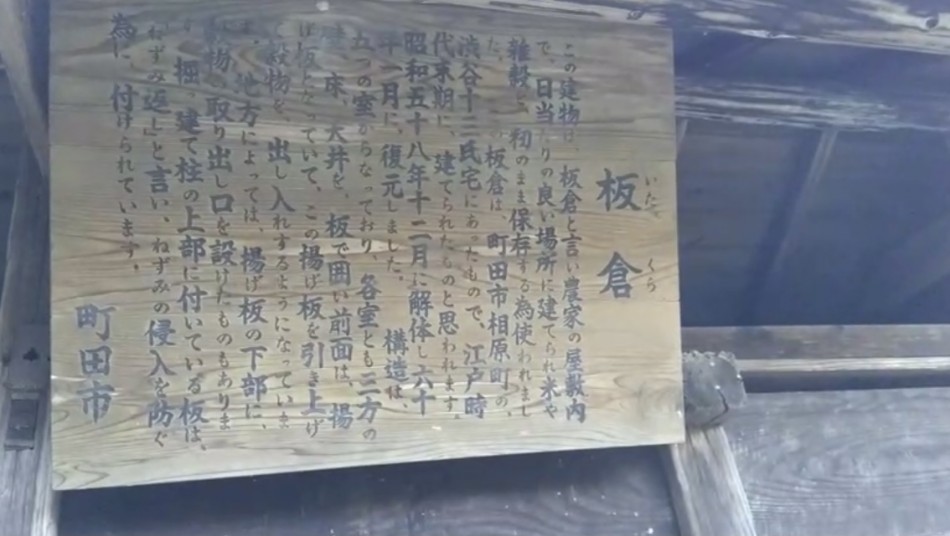 板倉
いたくら
この建物は、板倉と言い農家の屋敷内
で、日当りの良い場所に建てられ米や
雑穀を籾のまま保存する為使われまし
た。この板倉は、町田市相原町の、
渋谷十三氏宅にあったもので、江戸時
代末期に、建てられたものと思われます。
昭和五十八年十二月に解体し六十
年一月に、復元しました。 構造は、
五つの室からなっており、各室とも三方の
床、天井を、板で囲い前面は、揚
げ板となっていて、この揚げ板を引き上げ
穀物を、出し入れするようになっていま
地方によっては、揚げ板の下部に、
取り出し口を設けたものもありま
掘っ建て柱の上部に付いている板は、
「ねずみ返し」と言い、ねずみの侵入を防ぐ
為に、付けられています。
町田市